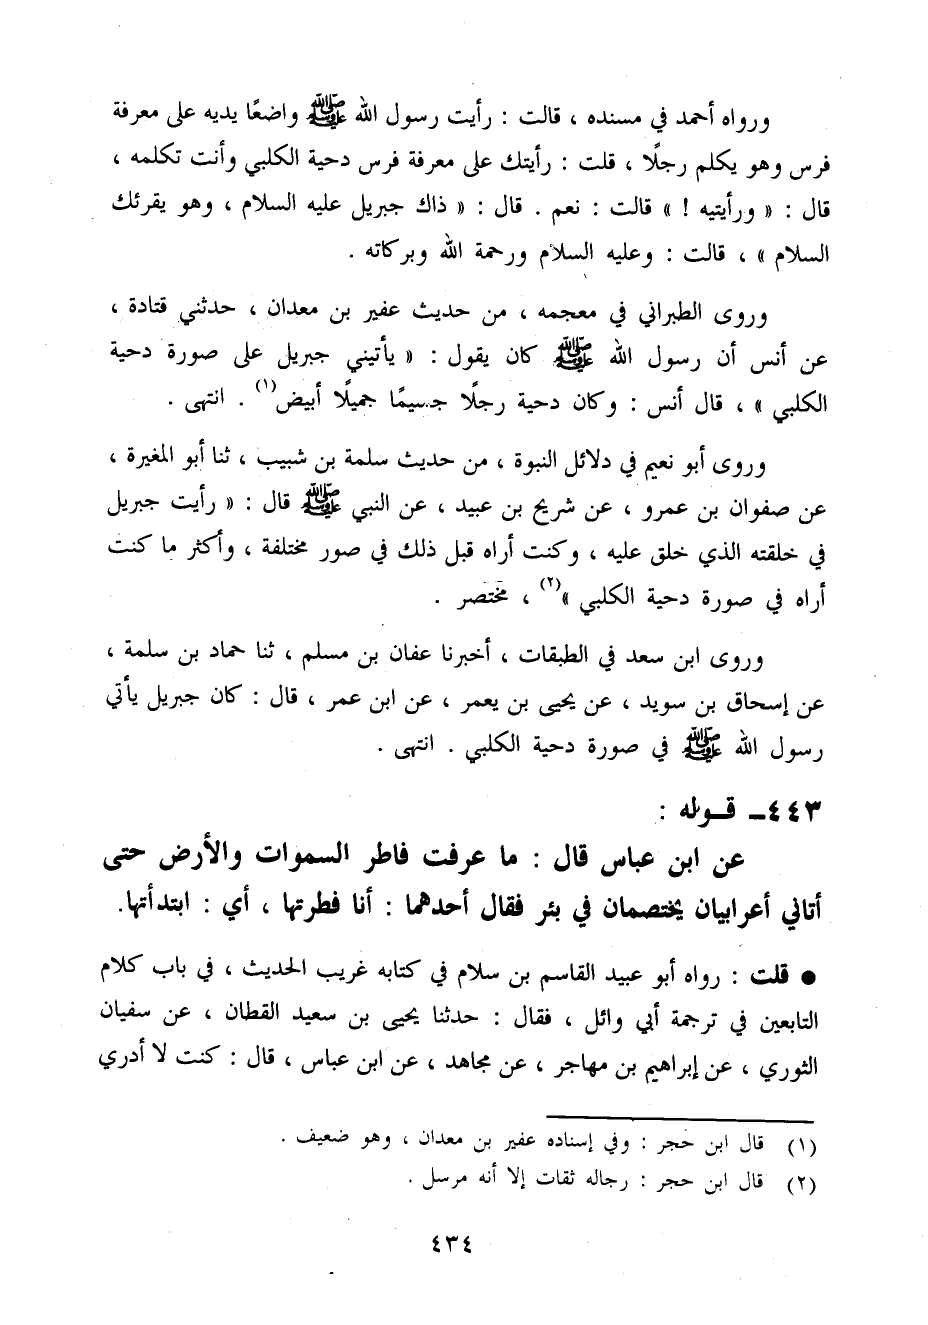 ورواه أحمد في مسنده ، قالت : رأيت رسول الله ﷺ واضعًا يديه على معرفة
فرس وهو يكلم رجلًا ، قلت : رأيتك على معرفة فرس دحية الكلبي وأنت تكلمه ،
قال : « ورأيتيه ! » قالت : نعم . قال : « ذاك جبريل عليه السلام ، وهو يقرئك
السلام » ، قالت : وعليه السلام ورحمة الله وبركاته .
وروى الطبراني في معجمه ، من حديث عفير بن معدان ، حدثني قتادة ،
عن أنس أن رسول الله ﷺ كان يقول : « يأتيني جبريل على صورة دحية
الكلبي » ، قال أنس : وكان دحية رجلًا جسيمًا جميلًا أبيض(١) . انتهى .
وروى أبو نعيم في دلائل النبوة ، من حديث سلمة بن شبيب ، ثنا أبو المغيرة ،
عن صفوان بن عمرو ، عن شريح بن عبيد ، عن النبي ﷺ قال : « رأيت جبريل
في خلقته الذي خلق عليه ، وكنت أراه قبل ذلك في صور مختلفة ، وأكثر ما كنت
أراه في صورة دحية الكلبي »(٢) ، مختصر .
وروى ابن سعد في الطبقات ، أخبرنا عفان بن مسلم ، ثنا حماد بن سلمة ،
عن إسحاق بن سويد ، عن يحيى بن يعمر ، عن ابن عمر ، قال : كان جبريل يأتي
رسول الله ﷺ في صورة دحية الكلبي . انتهى .
٤٤٣ـ قوله :
عن ابن عباس قال : ما عرفت فاطر السموات والأرض حتى
أتاني أعرابيان يختصمان في بئر فقال أحدهما : أنا فطرتها ، أي : ابتدأتها.
● قلت : رواه أبو عبيد القاسم بن سلام في كتابه غريب الحديث ، في باب كلام
التابعين في ترجمة أبي وائل ، فقال : حدثنا يحيى بن سعيد القطان ، عن سفيان
الثوري ، عن إبراهيم بن مهاجر ، عن مجاهد ، عن ابن عباس ، قال : كنت لا أدري
(١) قال ابن حجر : وفي إسناده عفير بن معدان ، وهو ضعيف .
(٢) قال ابن حجر : رجاله ثقات إلا أنه مرسل .
٤٣٤